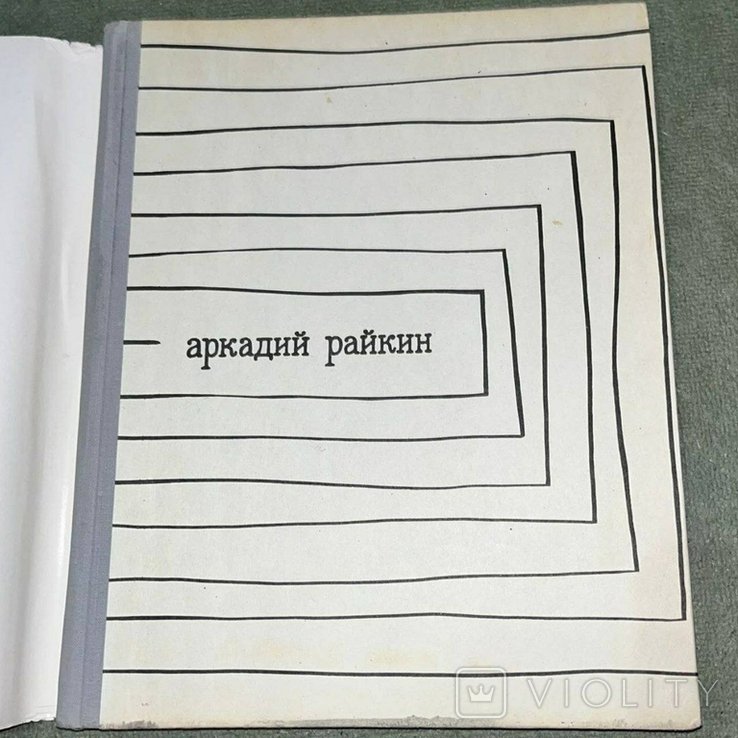 аркадий райкин
VIOLITY